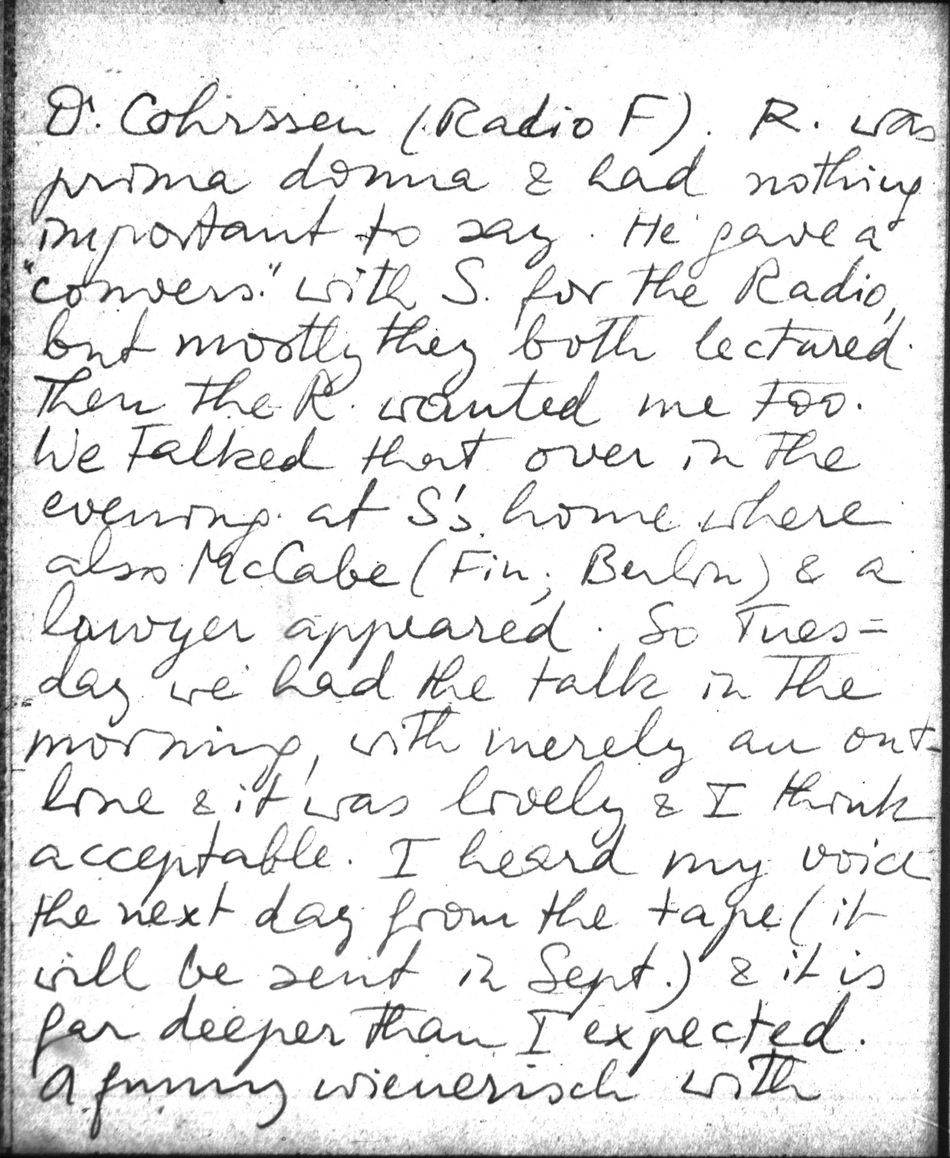 Dr. Cohrssen (Radio F). R. was
prima donna & had nothing
important to say. He gave a
"convers." with S. for the Radio,
but mostly they both lectured.
Then the R. wanted me too.
We talked that over in the
evening at S's home where
also McCabe (Fin; Berlin) & a
lawyer appeared. So Tues=
day we had the talk in the
morning, with merely an out=
line & it was lovely & I think
acceptable. I heard my voice
the next day from the tape (it
will be sent in Sept.) & it is
far deeper than I expected.
A funny wienerisch with